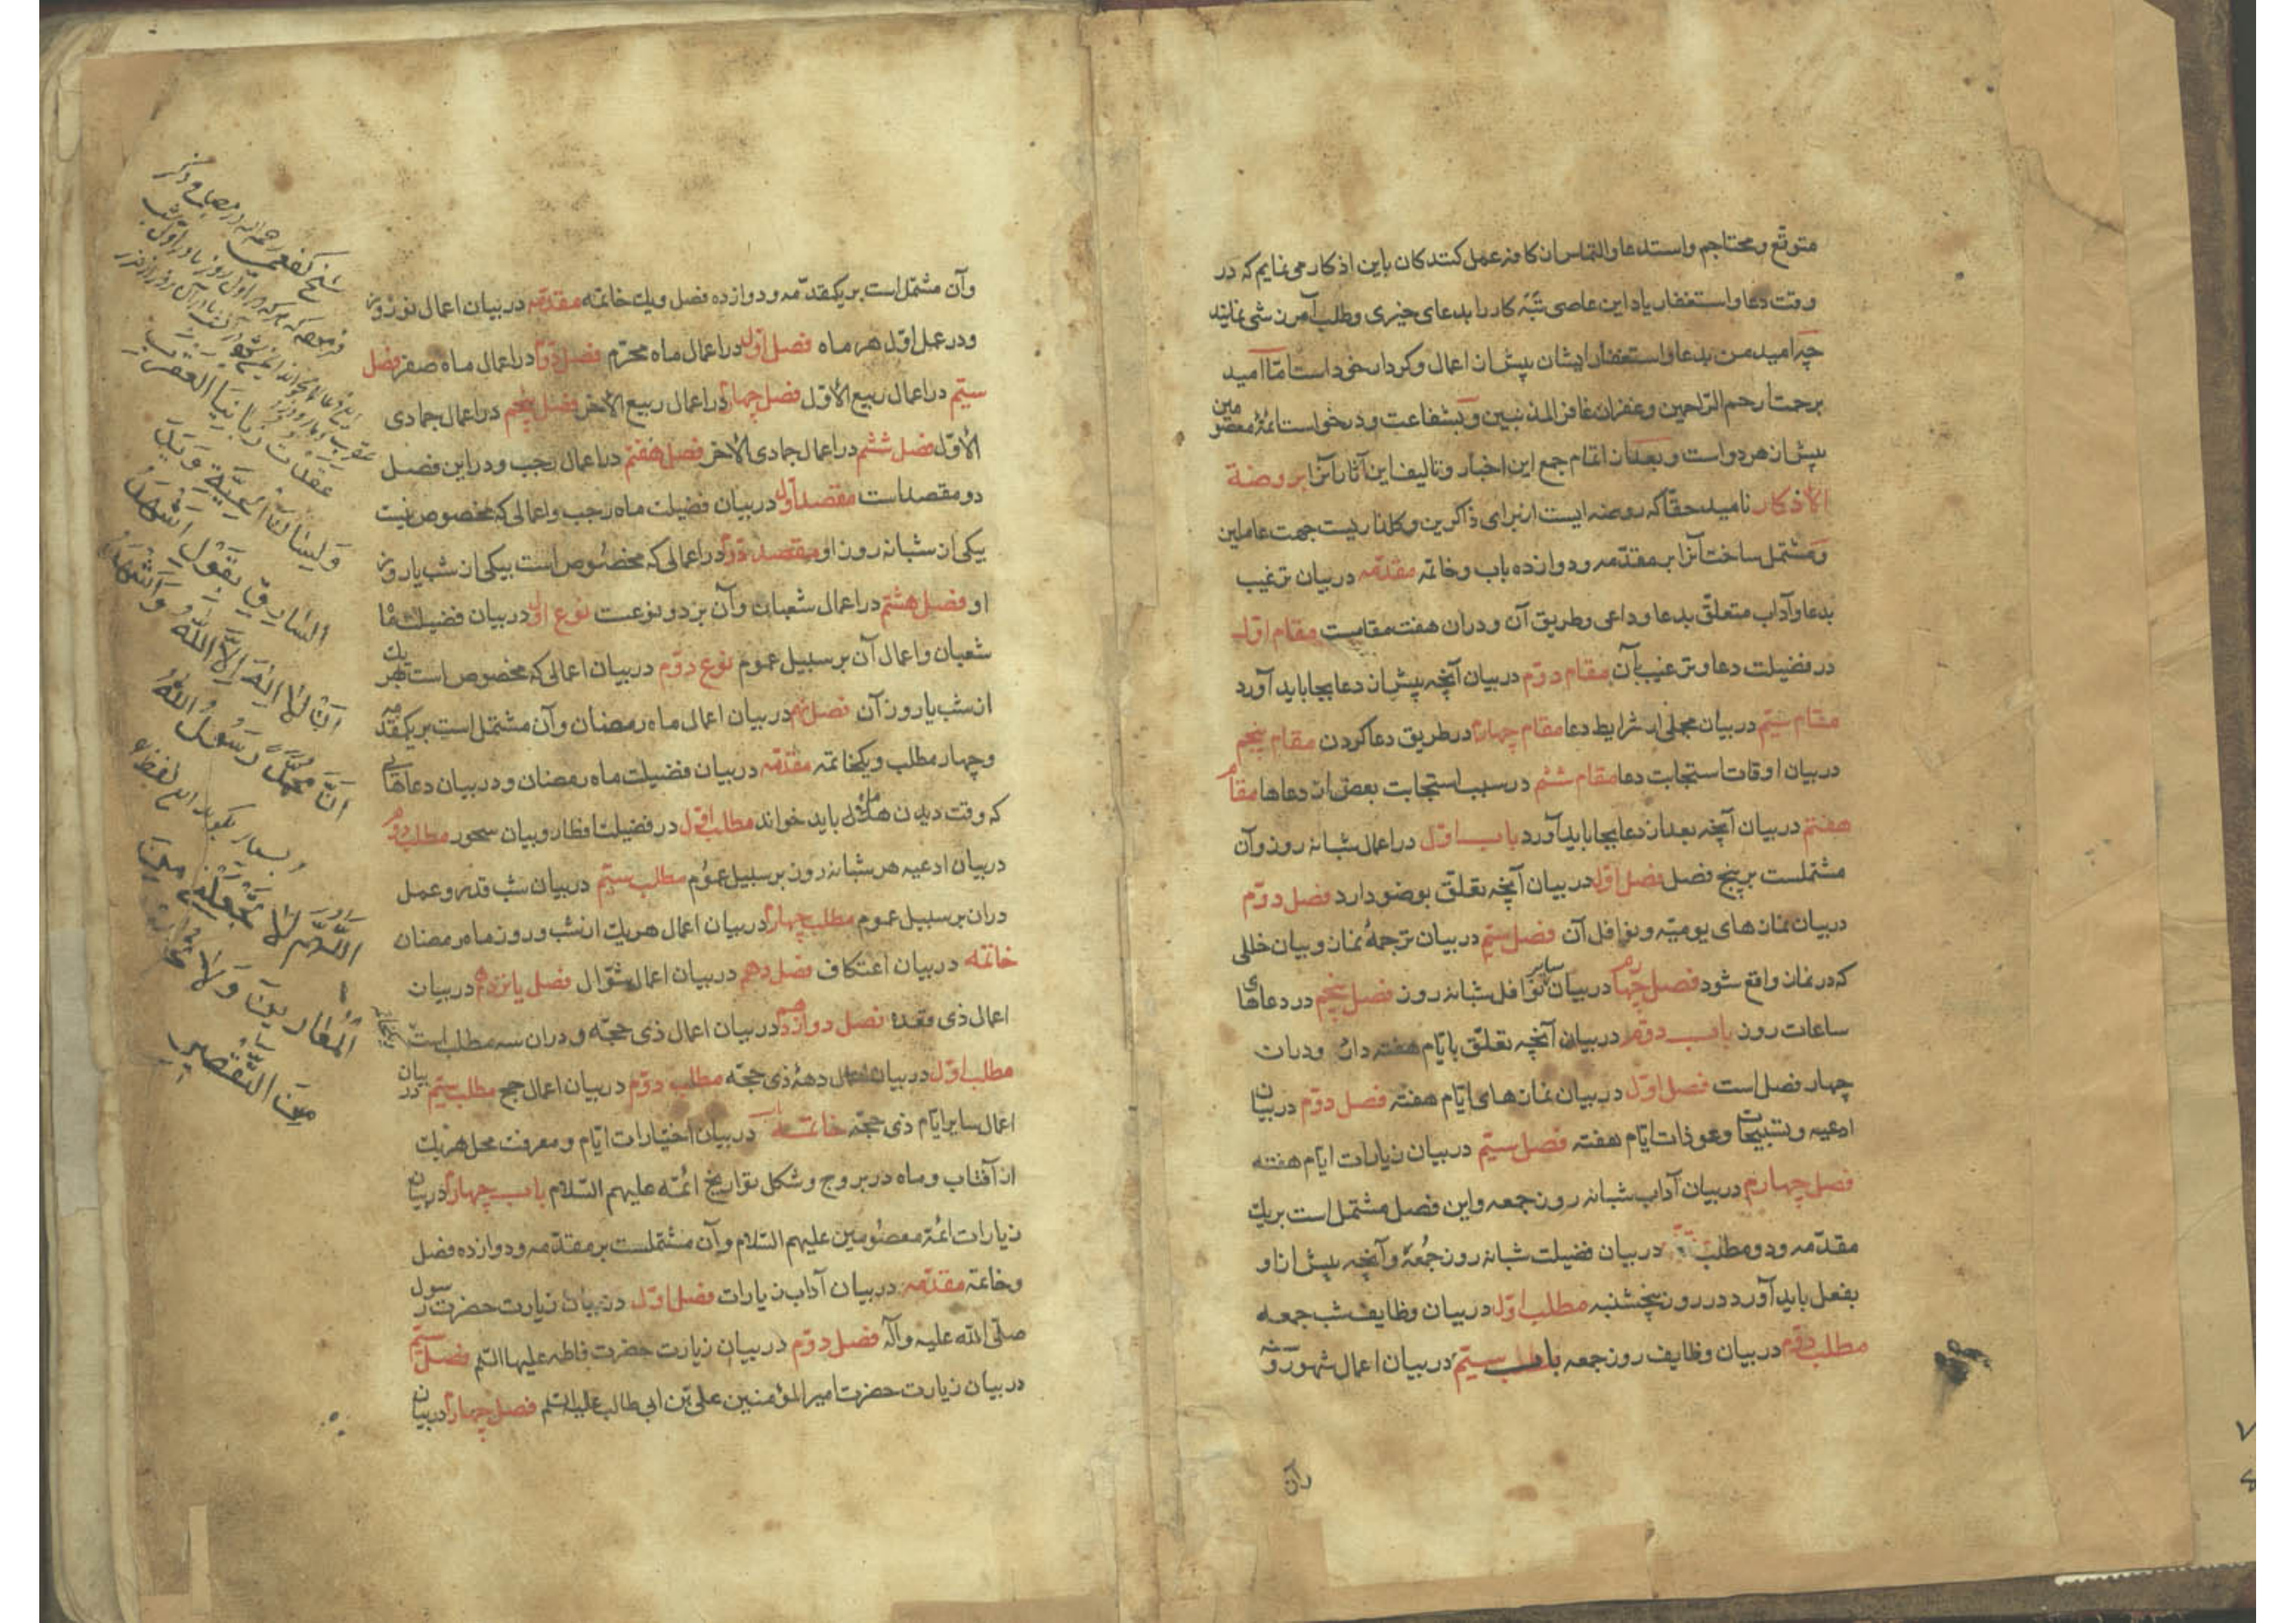 متوقع و محتاجم و استدعا و التماس از کافه عمل کنندکان باین اذکار می نمایم که در
وقت دعا و استغفار یاد این عاصی تبه کار را بدعای خیری و طلب آمرزشی نمایند
چه امید من بدعا و استغفار ایشان پیش از اعمال و کردار خود است امّا امید
برحمت ارحم الرّاحمین و غفران غافر المذنبین و بشفاعت و درخواست ائمّۀ معصومین
پیش از هر دو است و بعد از اتمام جمع این اخبار و تالیف این آثار آنرا بروضة
الأذکار نامید حقا که روضه ایست از برای ذاکرین و کلزاریست جهت عاملین
و مشتمل ساخت آنرا بر مقدّمه و دوازده باب و خاتمه مقدّمه در بیان ترغیب
بدعا و آداب متعلّق بدعا و داعی و طریق آن و دران هفت مقامست مقام اوّل
در فضیلت دعا و ترغیب بآن مقام دوّم در بیان آنچه پیش از دعا بجا باید آورد
مقام سیّم در بیان مجملی از شرایط دعا مقام چهارم در طریق دعا کردن مقام پنجم
در بیان اوقات استجابت دعا مقام ششم در سبب استجابت بعضی از دعاها مقام
هفتم در بیان آنچه بعد از دعا بجا باید آورد باب اوّل در اعمال شبانه روز و آن
مشتملست بر پنج فصل فصل اوّل در بیان آنچه تعلّق بوضو دارد فصل دوّم
در بیان نمازهای یومیّه و نوافل آن فصل سیّم در بیان ترجمۀ نماز و بیان خللی
که در نماز واقع شود فصل چهارم در بیان سایر نوافل شبانه روز فصل پنجم در دعاهای
ساعات روز باب دوّم در بیان آنچه تعلّق بایّام هفته دارد و دران
چهار فصل است فصل اوّل در بیان نمازهای ایّام هفته فصل دوّم در بیان
ادعیه و تسبیحات و عوذات ایّام هفته فصل سیّم در بیان زیارات ایّام هفته
فصل چهارم در بیان آداب شبانه روز جمعه و این فصل مشتمل است بر یک
مقدّمه و دو مطلب در بیان فضیلت شبانه روز جمعه و آنچه پیش از او
بفعل باید آورد در روز پنجشنبه مطلب اوّل در بیان وظایف شب جمعه
مطلب دوّم در بیان وظایف روز جمعه باب سیّم در بیان اعمال شهور
وآن
وآن مشتمل است بر یکمقدّمه و دوازده فصل و یک خاتمه مقدّمه در بیان اعمال نوروز
و در عمل اوّل هر ماه فصل اوّل در اعمال ماه محرّم فصل دوّم در اعمال ماه صفر فصل
سیّم در اعمال ربیع الأوّل فصل چهارم در اعمال ربیع الآخر فصل پنجم در اعمال جمادی
الأوّل فصل ششم در اعمال جمادی الآخر فصل هفتم در اعمال رجب و در این فصل
دو مقصد است مقصد اوّل در بیان فضیلت ماه رجب و اعمالی که مخصوص نیست
بیکی از شبانه روز او مقصد دوّم در اعمالی که مخصوص است بیکی از شب یا روز
او فصل هشتم در اعمال شعبان و آن بر دو نوعست نوع اوّل در بیان فضیلت ماه
شعبان و اعمال آن بر سبیل عموم نوع دوّم در بیان اعمالی که مخصوص است بهر یک
از شب یا روز آن فصل نهم در بیان اعمال ماه رمضان و آن مشتمل است بر یکمقدّمه
و چهار مطلب و یکخاتمه مقدّمه در بیان فضیلت ماه رمضان و در بیان دعاهائی
که وقت دیدن هلال باید خواند مطلب اوّل در فضیلت افطار و بیان سحور مطلب دوّم
در بیان ادعیه هر شبانه روز بر سبیل عموم مطلب سیّم در بیان شب قدر و عمل
دران بر سبیل عموم مطلب چهارم در بیان اعمال هر یک از شب و روز ماه رمضان
خاتمه در بیان اعتکاف فصل دهم در بیان اعمال شوّال فصل یازدهم در بیان
اعمال ذی قعده فصل دوازدهم در بیان اعمال ذی حجّه و دران سه مطلب است
مطلب اوّل در بیان اعمال دهۀ ذی حجّه مطلب دوّم در بیان اعمال حج مطلب سیّم در بیان
اعمال سایر ایّام ذی حجّه خاتمه در بیان اختیارات ایّام و معرفت محل هر یک
از آفتاب و ماه در بروج و شکل تواریخ ائمّه علیهم السّلام باب چهارم در بیان
زیارات ائمّۀ معصومین علیهم السّلام و آن مشتملست بر مقدّمه و دوازده فصل
و خاتمه مقدّمه در بیان آداب زیارات فصل اوّل در بیان زیارت حضرت رسول
صلّی الله علیه و آله فصل دوّم در بیان زیارت حضرت فاطمه علیها السّلم فصل سیّم
در بیان زیارت حضرت امیر المؤمنین علی بن ابی طالب علیه السّلم فصل چهارم در بیان
شیخ کفعمی رحمه الله در مصباح ذکر
عقدت زبانیا العقرب
ولسان الحیّة و ید
السارق بقول اشهد
ان لا اله الا الله و اشهد
ان محمّد رسول الله
و بسیار بکوید این لفظ
اللّهم لا تجعلنی من
المعارین و لا تخرجنی
من التقصیر